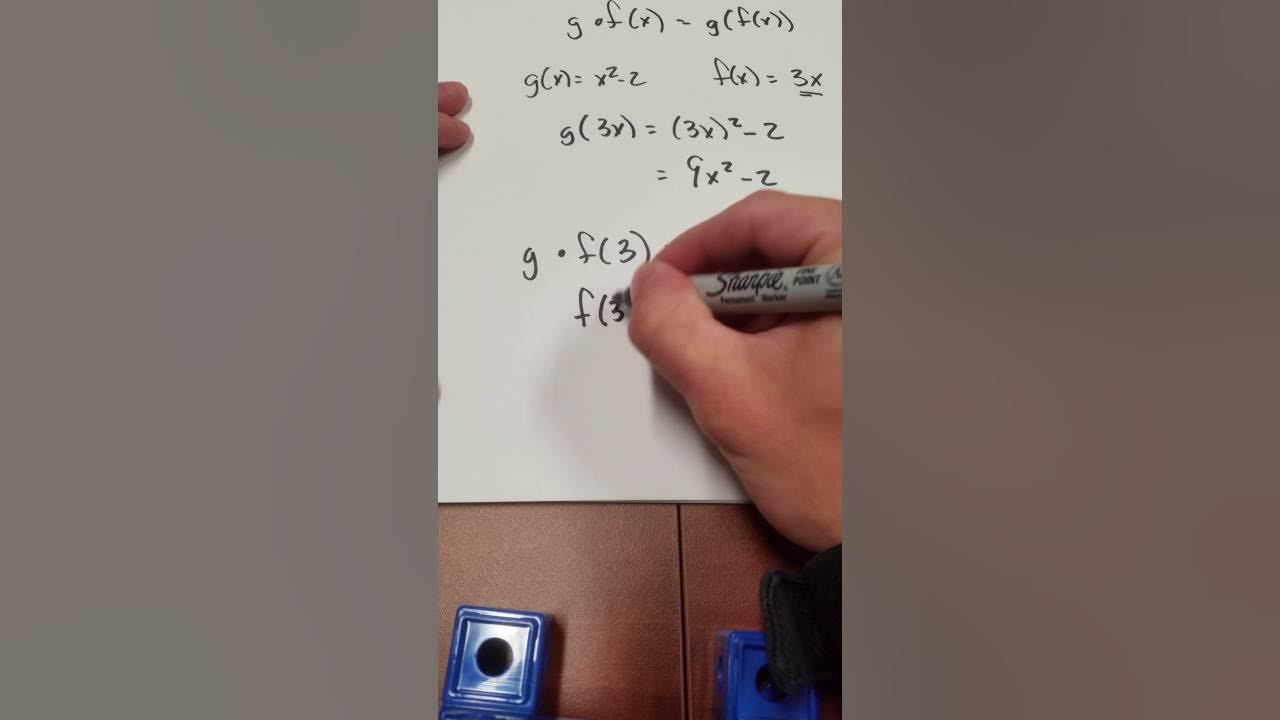 g∘f(x) = g(f(x))
g(x) = x²-2 f(x) = 3x
g(3x) = (3x)² - 2
= 9x² - 2
g · f(3)
f(3
Sharpie. FINE POINT
Permanent Marker